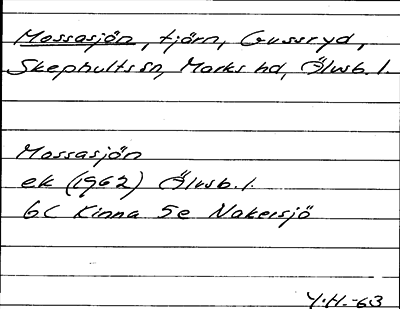 Mossasjön, tjärn, Gussryd,
Skephults sn, Marks hd, Älvsb. l.
Mossasjön
ek (1962) Älvsb. l.
6C Kinna 5e Nakersjö
Y.H.-63